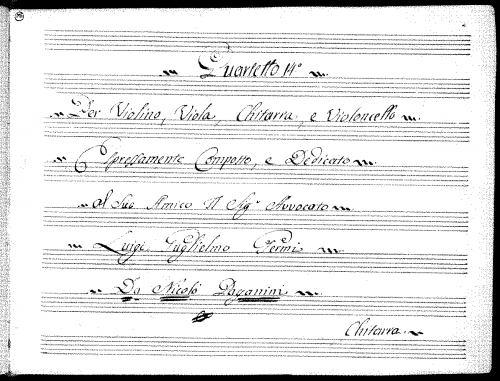 Quartetto 14º
Per Violino, Viola, Chitarra, e Violoncello
Espressamente Composto, e Dedicato
al Suo Amico Il Sigr Avvocato
Luigi Guglielmo Germi
Da Nicolò Paganini
Chitarra